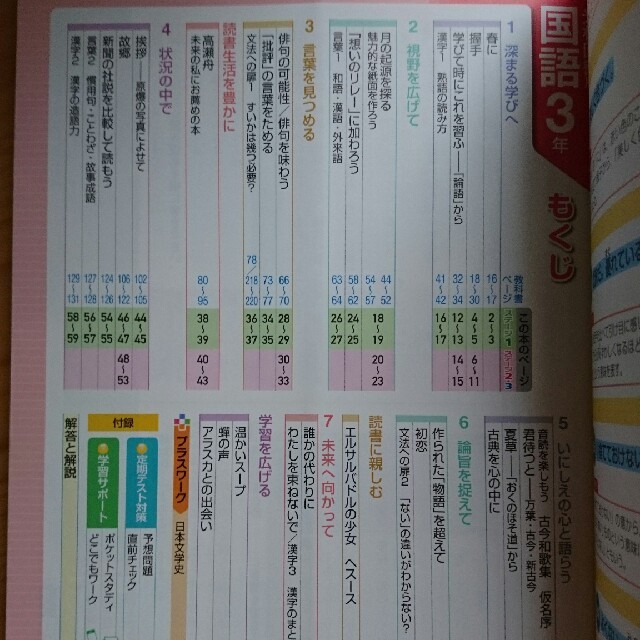 国語3年
もくじ
教科書ページ
この本のページ
ステージ1
ステージ2・3
1 深まる学びへ
春に 16〜17 2〜3
握手 18〜30 4〜5 6〜11
学びて時にこれを習ふ――「論語」から 32〜34 12〜13 14〜15
漢字1 熟語の読み方 41〜42 16〜17
2 視野を広げて
月の起源を探る 44〜52 18〜19 20〜23
魅力的な紙面を作ろう 54〜57
「想いのリレー」に加わろう 58〜62 24〜25
言葉1 和語・漢語・外来語 63〜64 26〜27
3 言葉を見つめる
俳句の可能性/俳句を味わう 66〜70 28〜29 30〜33
「批評」の言葉をためる 73〜77 34〜35
文法への扉1 すいかは幾つ必要? 78/218〜220 36〜37
読書生活を豊かに
高瀬舟 80〜95 38〜39 40〜43
未来の私にお薦めの本
4 状況の中で
挨拶――原爆の写真によせて 102〜105 44〜45
故郷 106〜122 46〜47 48〜53
新聞の社説を比較して読もう 124〜126 54〜55
言葉2 慣用句・ことわざ・故事成語 127〜128 56〜57
漢字2 漢字の造語力 129〜131 58〜59
5 いにしえの心と語らう
音読を楽しもう 古今和歌集 仮名序
君待つと――万葉・古今・新古今
夏草――「おくのほそ道」から
古典を心の中に
6 論旨を捉えて
作られた「物語」を超えて
初恋
文法への扉2 「ない」の違いがわからない?
読書に親しむ
エルサルバドルの少女 ヘスース
7 未来へ向かって
誰かの代わりに
わたしを束ねないで/漢字3 漢字のまと
学習を広げる
温かいスープ
蝉の声
アラスカとの出会い
プラスワーク 日本文学史
付録
定期テスト対策
予想問題
直前チェック
学習サポート
ポケットスタディ
どこでもワーク
解答と解説